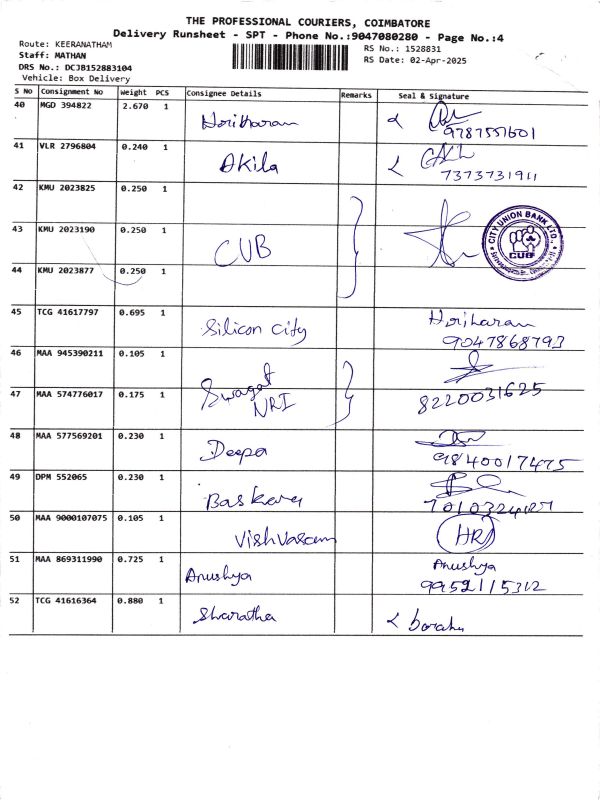 THE PROFESSIONAL COURIERS, COIMBATORE
Delivery Runsheet - SPT - Phone No.:9047080280 - Page No.:4
Route: KEERANATHAM
RS No.: 1528831
Staff: MATHAN
RS Date: 02-Apr-2025
DRS No.: DCJB152883104
Vehicle: Box Delivery
S No Consignment No Weight PCS Consignee Details Remarks Seal & Signature
40 MGD 394822 2.670 1 Hariharan
9787551601
41 VLR 2796804 0.240 1 Akila
7373731911
42 KMU 2023825 0.250 1
43 KMU 2023190 0.250 1 CUB
CITY UNION BANK LTD.,
CUB
44 KMU 2023877 0.250 1
45 TCG 41617797 0.695 1 Silicon City Hariharan
9047868793
46 MAA 945390211 0.105 1 Swagat
47 MAA 574776017 0.175 1 NRI 8220031625
48 MAA 577569201 0.230 1 Deepa
9840017475
49 DPM 552065 0.230 1 Baskary
50 MAA 9000107075 0.105 1 Vishvasam HR
51 MAA 869311990 0.725 1 Anushya Anushya
9952115312
52 TCG 41616364 0.880 1 Sharatha